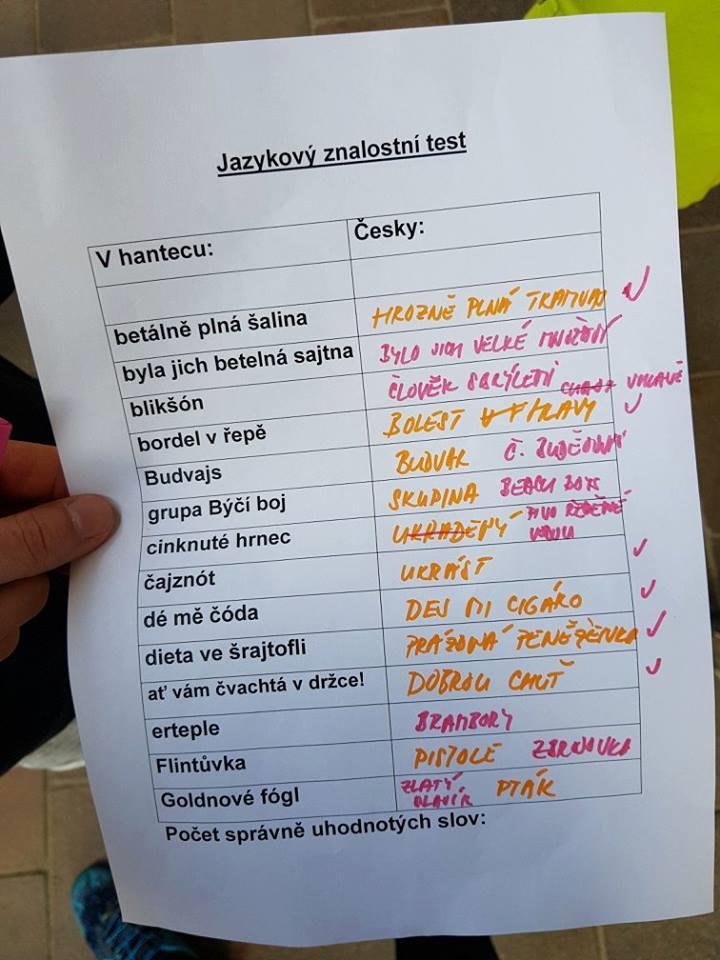 Jazykový znalostní test
V hantecu: Česky:
betálně plná šalina HROZNĚ PLNÁ TRAMVAJ
byla jich betelná sajtna BYLO JICH VELKÉ
blikšón ČLOVĚK S BRÝLEMI
V HLAVĚ
bordel v řepě BOLEST HLAVY
Budvajs BUDVAR Č. BUDĚJOVICE
grupa Býčí boj SKUPINA BEACH BOYS
cinknuté hrnec UKRADENÝ PIVO ŘEDĚNÉ
VODOU
čajznót UKRÁST
dé mě čóda DEJ MI CIGÁRO
dieta ve šrajtofli PRÁZDNÁ PENĚŽENKA
ať vám čvachtá v držce! DOBROU CHUŤ
erteple BRAMBORY
Flintůvka PISTOLE ZBROJOVKA
Goldnové fógl ZLATÝ PTÁK
SLAVÍK
Počet správně uhodnotých slov: